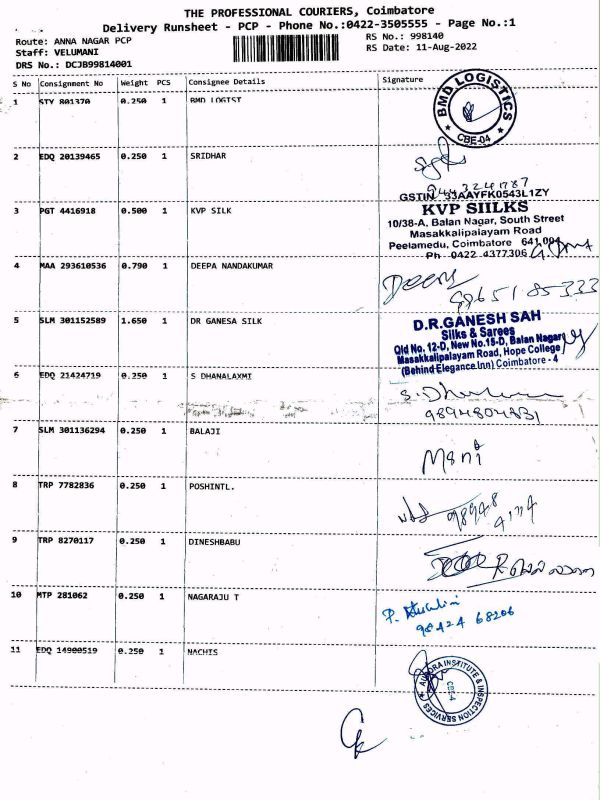 THE PROFESSIONAL COURIERS, Coimbatore
Delivery Runsheet - PCP - Phone No.:0422-3505555 - Page No.:1
Route: ANNA NAGAR PCP RS No.: 998140
Staff: VELUMANI RS Date: 11-Aug-2022
DRS No.: DCJB99814001
S No Consignment No Weight PCS Consignee Details Signature
1 STY 801370 0.250 1 BMD LOGIST
BMD LOGISTICS
CBE-04
2 EDQ 20139465 0.250 1 SRIDHAR
GSTIN 33AAYFK0543L1ZY
3 PGT 4416918 0.500 1 KVP SILK
KVP SIILKS
10/38-A, Balan Nagar, South Street
Masakkalipalayam Road
Peelamedu, Coimbatore 641 004
Ph 0422 4377306
4 MAA 293610536 0.790 1 DEEPA NANDAKUMAR
Deepa
8865185333
5 SLM 301152589 1.650 1 DR GANESA SILK
D.R.GANESH SAH
Silks & Sarees
Old No. 12-D, New No.15-D, Balan Nagar
Masakkalipalayam Road, Hope College
(Behind Elegance.Inn) Coimbatore - 4
6 EDQ 21424719 0.250 1 S DHANALAXMI
9894804831
7 SLM 301136294 0.250 1 BALAJI
Mani
8 TRP 7782836 0.250 1 POSHINTL.
98948
4174
9 TRP 8270117 0.250 1 DINESHBABU
10 MTP 281062 0.250 1 NAGARAJU T
98424 68206
11 EDQ 14900519 0.250 1 NACHIS
INSTITUTE & INSPECTION SERVICES
CBE-4